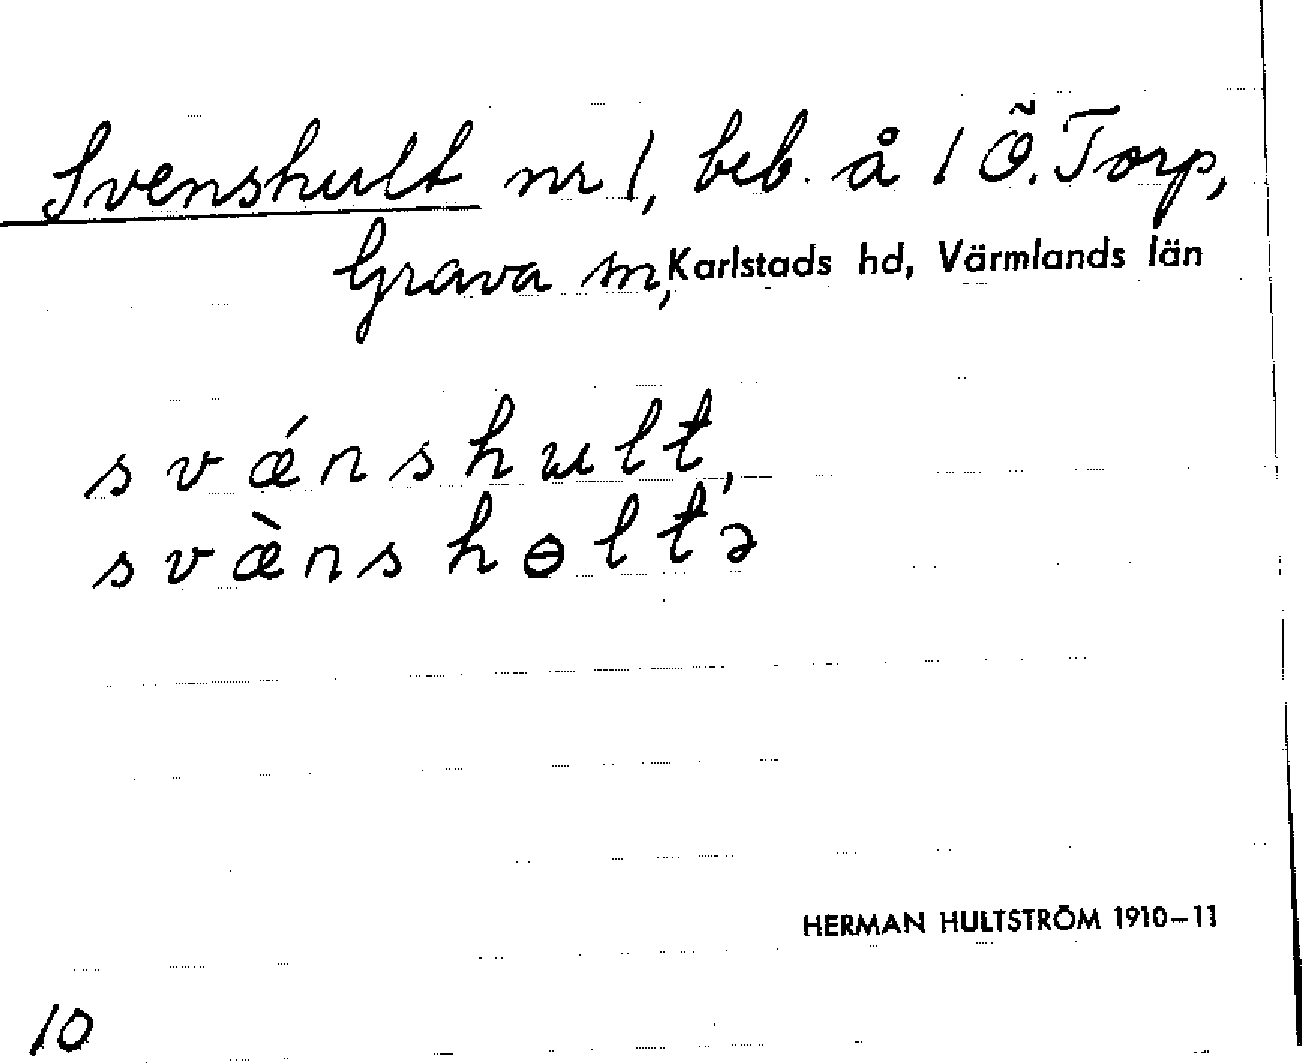 Svenshult nr 1, beb. å 1 Ö. Torp,
Grava sn, Karlstads hd, Värmlands län
svǽnshult,
svæ̀nshɵltə
HERMAN HULTSTRÖM 1910–11
10